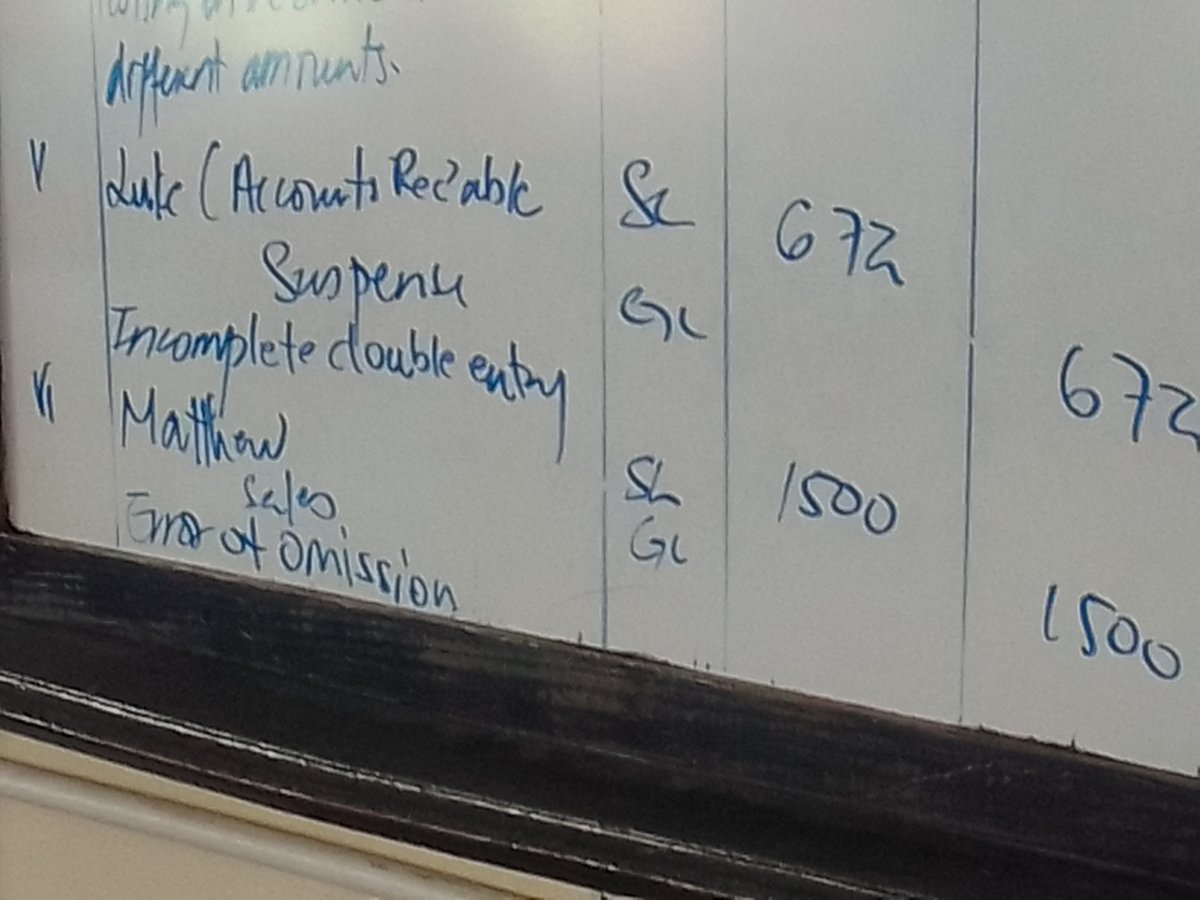 different amounts.
V Luke (Accounts Rec'able SL 672
Suspense GL 672
Incomplete double entry
VI Matthew SL 1500
Sales GL 1500
Error of Omission